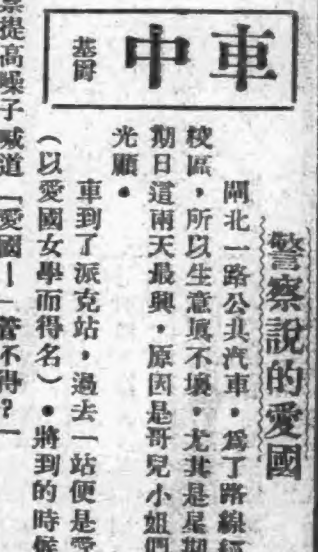 車中
基爵
警察說的愛國
閘北一路公共汽車，爲了路線經
校區，所以生意眞不壞，尤其是星期
期日這兩天最興，原因是哥兒小姐們
光顧。
車到了派克站，過去一站便是愛
（以愛國女學而得名）。將到的時候
察提高嗓子喊道「愛國！一管不得？一